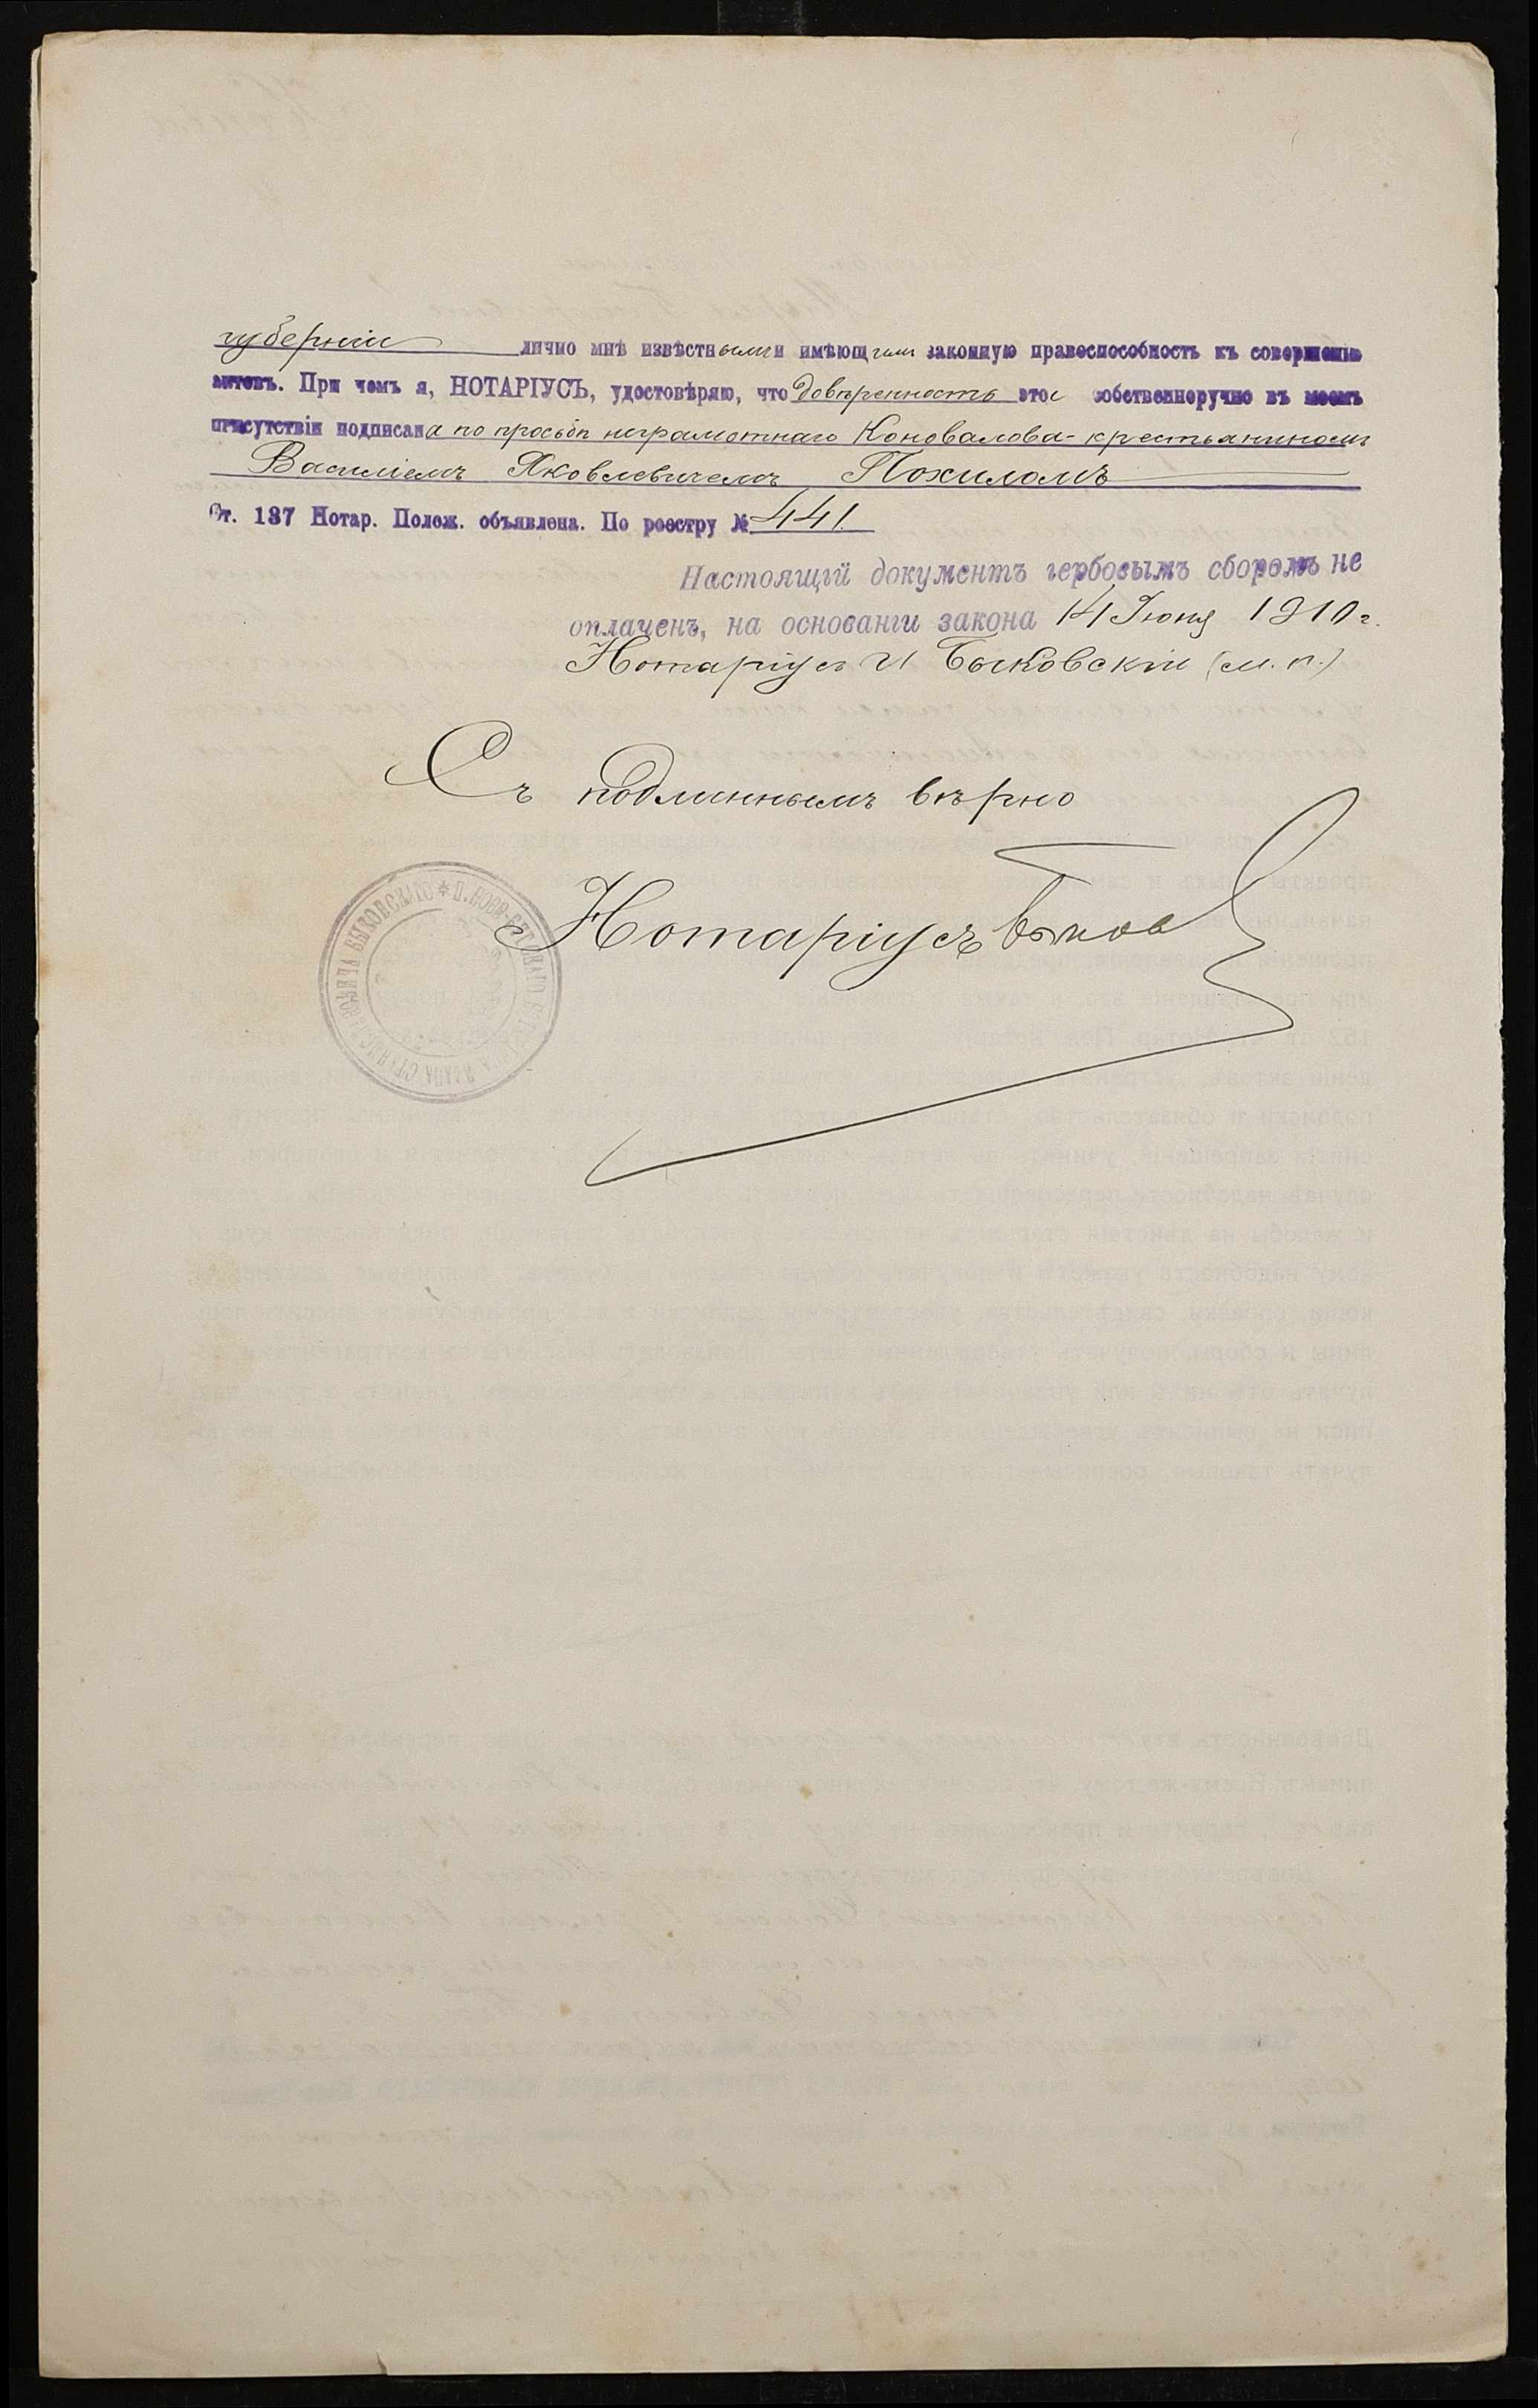 губерніи лично мнѣ извѣстными и имѣющими законную правоспособность къ совершенію
актовъ. При чемъ я, НОТАРІУСЪ, удостовѣряю, что довѣренность эта собственноручно въ моемъ
присутствіи подписана по просьбѣ неграмотнаго Коновалова - крестьяниномъ
Василіемъ Яковлевичемъ Похиломъ
Ст. 137 Нотар. Полож. объявлена. По реестру № 441.
Настоящій документъ гербовымъ сборомъ не
оплаченъ, на основаніи закона 14 Іюня 1910 г.
Нотаріусъ И Быковскій (м. п.)
Съ подлиннымъ вѣрно
Нотаріусъ Быков
БЫКОВСКАГО